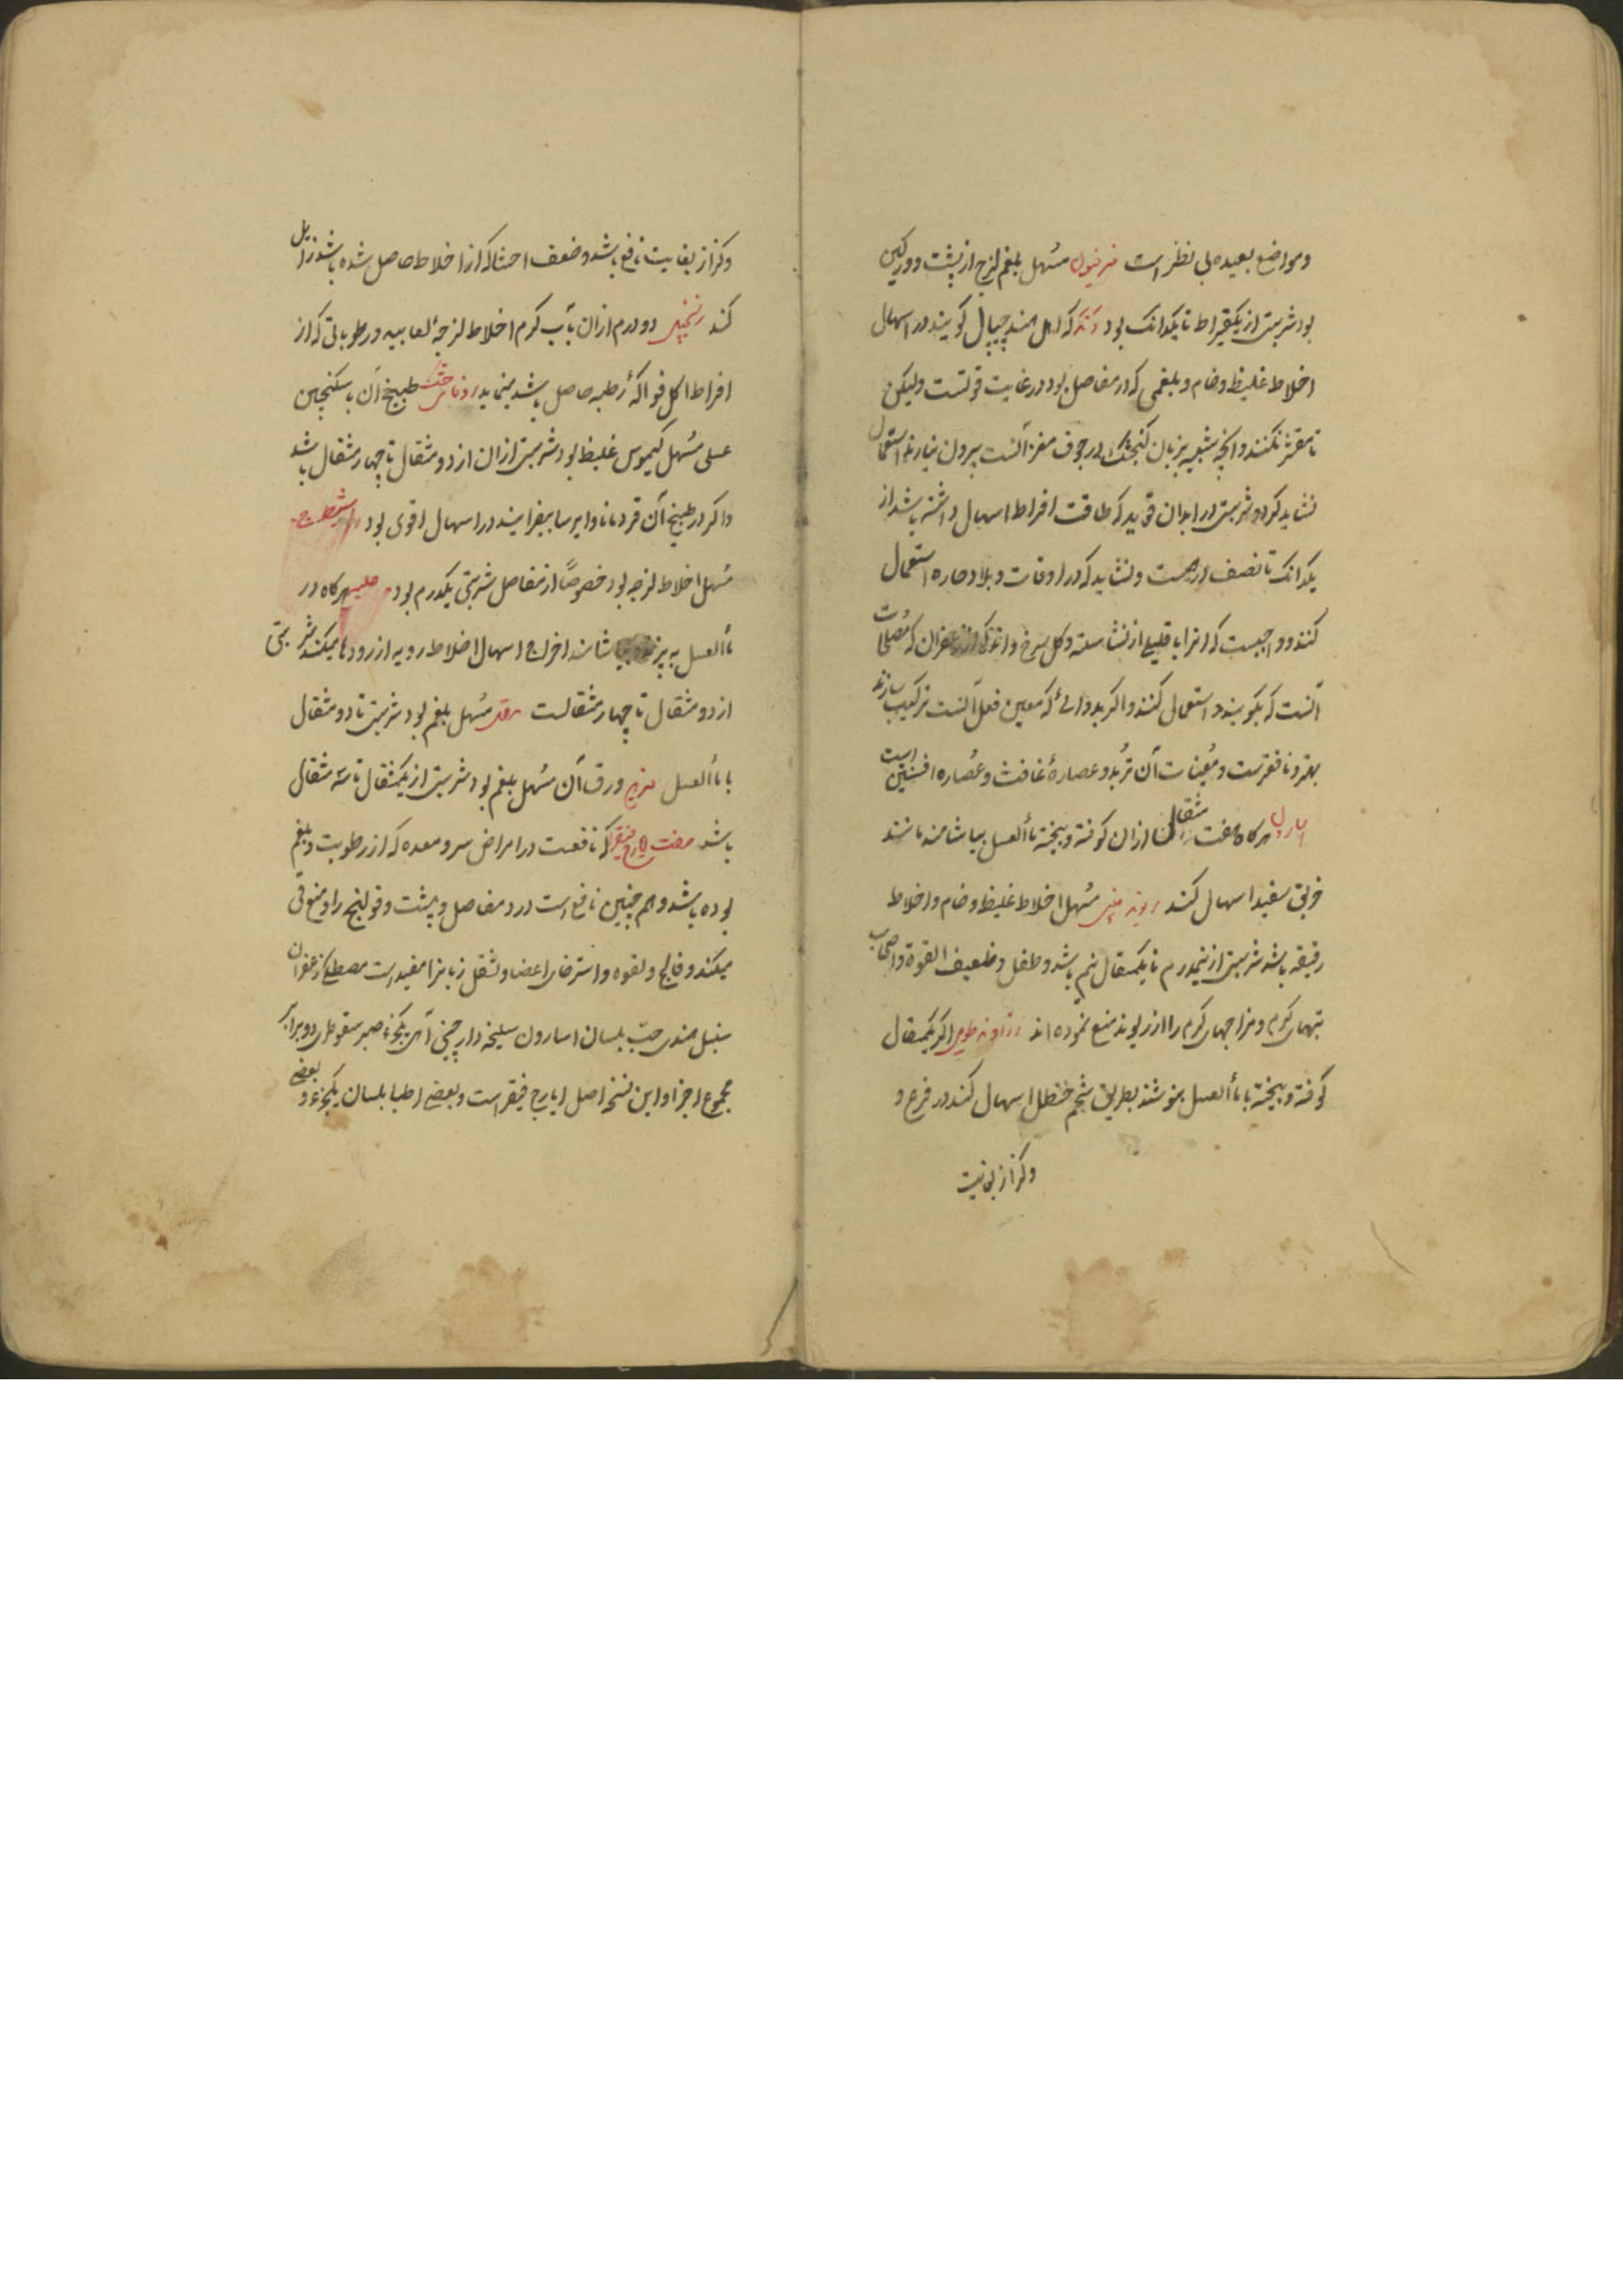 ومواضع بعیده بی نظیر است فرفیون مسهل بلغم لزج از پشت و ورکین
بود شربتی از یکقیراط تا یکدانک بود دند که اهل هند چیپال کویند در اسهال
اخلاط غلیظ و خام و بلغمی که در مفاصل بود در غایت قوتست ولیکن
تا مقشر نکنند و انچه شبیه بزبان کنجشک در جوف مغز آنست بیرون نیارند استعمال
نشاید کرد و شربتی در ابدان قویه که طاقت افراط اسهال داشته باشد از
یکدانک تا نصف درهمست و نشاید که در اوقات و بلاد حاره استعمال
کنند و واجبست که انرا با قلیلی از نشاسته و کل سرخ و اندکی از زعفران که مصلحات
آنست که بکوبیند و استعمال کنند و اکر بدوائی که معین فعل آنست ترکیب سازند
بهتر و نافعترست و معینات آن تربد و عصاره غافث و عصاره افسنتین است
هرکاه هفت مثقال ازان کوفته و بیخته بماألعسل بیاشامند مانند
خربق سفید اسهال کند ریوند چینی مسهل اخلاط غلیظ و خام و اخلاط
رقیقه باشد شربتی از نیمدرم تا یکمثقال نیم باشد و طفل و ضعیف القوة و اصحاب
تبهای کرم و مزاجهای کرم را از ریوند منع نموده اند زراوند طویل اکر یکمثقال
کوفته و بیخته با ماألعسل بنوشند بطریق شحم حنظل اسهال کند در فرع و
وکزاز بغایت
وکزاز بغایت نافع باشد و ضعف احشا که از اخلاط حاصل شده باشد زایل
کند زنجبیل دو درم ازان بآب کرم اخلاط لزجۀ لعابیه و رطوباتی که از
افراط اکل فواکۀ رطبه حاصل باشد بنماید طبیخ آن با سکنجبین
عسلی مسهل کیموس غلیظ بود شربتی ازان از دو مثقال تا چهار مثقال باشد
و اکر در طبیخ آن قردمانا و ایرسا بیفزایند در اسهال اقوی بود شیطرج
مسهل اخلاط لزجه بود خصوصًا از مفاصل شربتی یکدرم بود حلبه هرکاه در
ماألعسل به پزند و بیاشامند اخراج اسهال اخلاط ردیه از رودها میکند شربتی
از دو مثقال تا چهار مثقالست مقل مسهل بلغم بود شربتی تا دو مثقال
با ماألعسل ورق آن مسهل بلغم بود شربتی از یکمثقال تا سه مثقال
باشد صفت ایارج فیقرا که نافعست در امراض سر و معده که از رطوبت و بلغم
بوده باشد و هم چنین نافع است درد مفاصل و پشت و قولنج را و منع قی
میکند و فالج و لقوه و استرخای اعضا و ثقل زبانرا مفید است مصطکی زعفران
سنبل هندی حب بلسان اسارون سلیخه دارچینی از هر یکجزء صبر سقوطری دو برابر
مجموع اجزا و این نسخه اصل ایارج فیقراست و بعضی اطبا بلسان یکجزء و بعضی